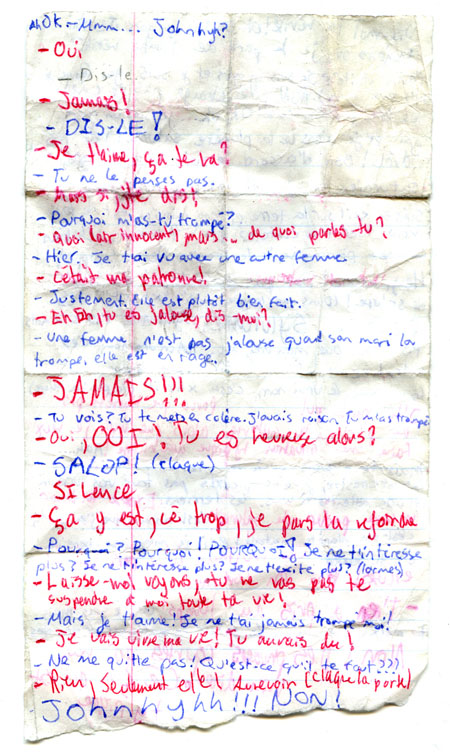 Ah OK - Mmm... Johnhyh?
- Oui
- Dis-le.
- Jamais!
- DIS-LE!
- Je t'aime, ça te va?
- Tu ne le penses pas.
- Mais si, j'te dis!
- Pourquoi m'as-tu trompé?
- quoi (air innocent) mais... de quoi parles-tu?
- Hier. Je t'ai vu avec une autre femme.
- C'était ma patronne!
- Justement. Elle est plutôt bien fait.
- Eh Eh, tu es jalouse, dis-moi?
- Une femme n'est pas jalouse quand son mari la
trompe, elle est en rage.
- JAMAIS!!!
- Tu vois? Tu te mets en colère. J'avais raison. Tu m'as trompé
- Oui, OUI! Tu es heureuse alors?
- SALOP! (claque)
SILence
- Ça y est, cé trop, je pars la rejoindre
- Pourquoi? Pourquoi! POURQUOI? Je ne t'intéresse
plus? Je ne t'intéresse plus? Je ne t'excite plus? (larmes)
- Laisse-moi voyons, tu ne vas pas te
suspendre à moi toute ta vie!
- Mais je t'aime! Je ne t'ai jamais trompé moi!
- Je vais vivre ma vie! Tu aurais du!
- Ne me quitte pas! Qu'est-ce qu'il te faut???
- Rien, seulement elle! Aurevoir (claque la porte)
Johnhyhh!!! NON!